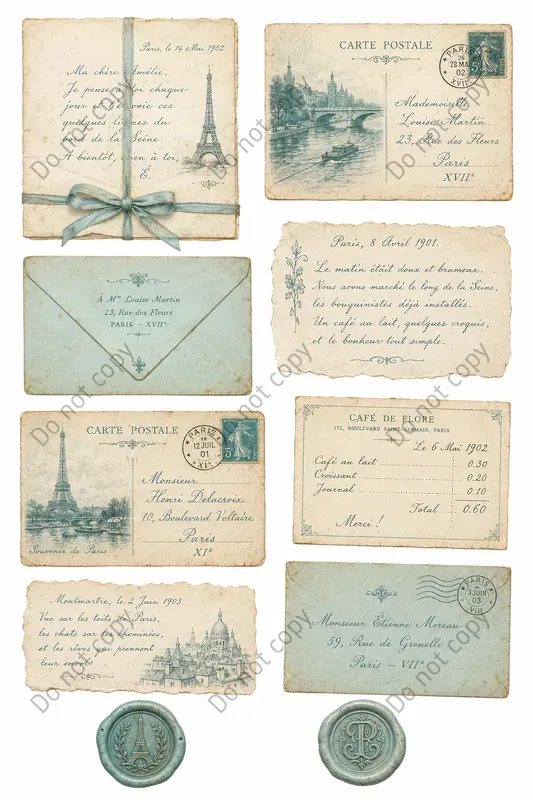 Paris, le 14 Mai 1902
Ma chère Amélie,
Je pense à toi chaque
jour et t'envoie ces
quelques lignes du
bord de la Seine.
A bientôt, bien à toi,
E.
CARTE POSTALE
PARIS
28 MAI
02
XVIIᵉ
5
Mademoiselle
Louise Martin
23, Rue des Fleurs
Paris
XVIIᵉ
À Mˡˡᵉ Louise Martin
23, Rue des Fleurs
PARIS – XVIIᵉ
Paris, 8 Avril 1901.
Le matin était doux et brumeux.
Nous avons marché le long de la Seine,
les bouquinistes déjà installés.
Un café au lait, quelques croquis,
et le bonheur tout simple.
CARTE POSTALE
PARIS
12 JUIL
01
XIᵉ
5
Monsieur
Henri Delacroix
10, Boulevard Voltaire
Paris
XIᵉ
Souvenir de Paris
CAFÉ DE FLORE
172, BOULEVARD SAINT-GERMAIN, PARIS
Le 6 Mai 1902
Café au lait 0.30
Croissant 0.20
Journal 0.10
Total 0.60
Merci !
Montmartre, le 2 Juin 1903.
Vue sur les toits de Paris,
les chats sur les cheminées,
et les rêves qui prennent
leur envol.
PARIS
3 JUIN
03
VII
Monsieur Étienne Moreau
59, Rue de Grenelle
Paris – VIIᵉ
Do not copy
Do not copy
Do not copy
Do not copy
Do not copy
Do not copy
Do not copy
Do not copy
Do not copy
Do not copy
Do not copy
Do not copy